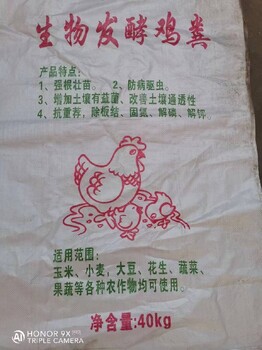 生物发酵鸡粪
产品特点:
1、强根壮苗。 2、防病驱虫。
3、增加土壤有益菌、改善土壤通透性
4、抗重茬,除板结、固氮、解磷、解钾
适用范围:
玉米、小麦,大豆、花生、蔬菜、
果蔬等各种农作物均可使用。
净含量:40kg
HONOR 9X
TRIPLE CAMERA